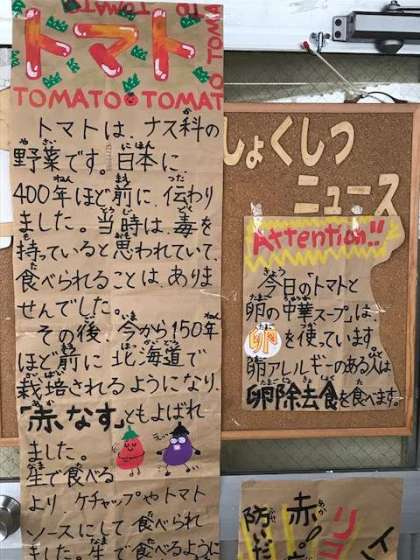 トマト
TOMATO TOMATO
TOMATO
トマトは、ナス科の
野菜です。日本に
400年ほど前に、伝わり
ました。当時は、毒を
持っていると思われていて、
食べられることは、ありま
せんでした。
その後、今から150年
ほど前に北海道で
栽培されるようになり、
「赤なす」ともよばれ
ました。
生で食べる
より、ケチャップやトマト
ソースにして食べられ
ました。生で食べるように
しょくしつ
ニュース
Attention!!
今日のトマトと
卵の中華スープは、
卵を使っています。
卵アレルギーのある人は
卵除去食を食べます。
赤
防いだ